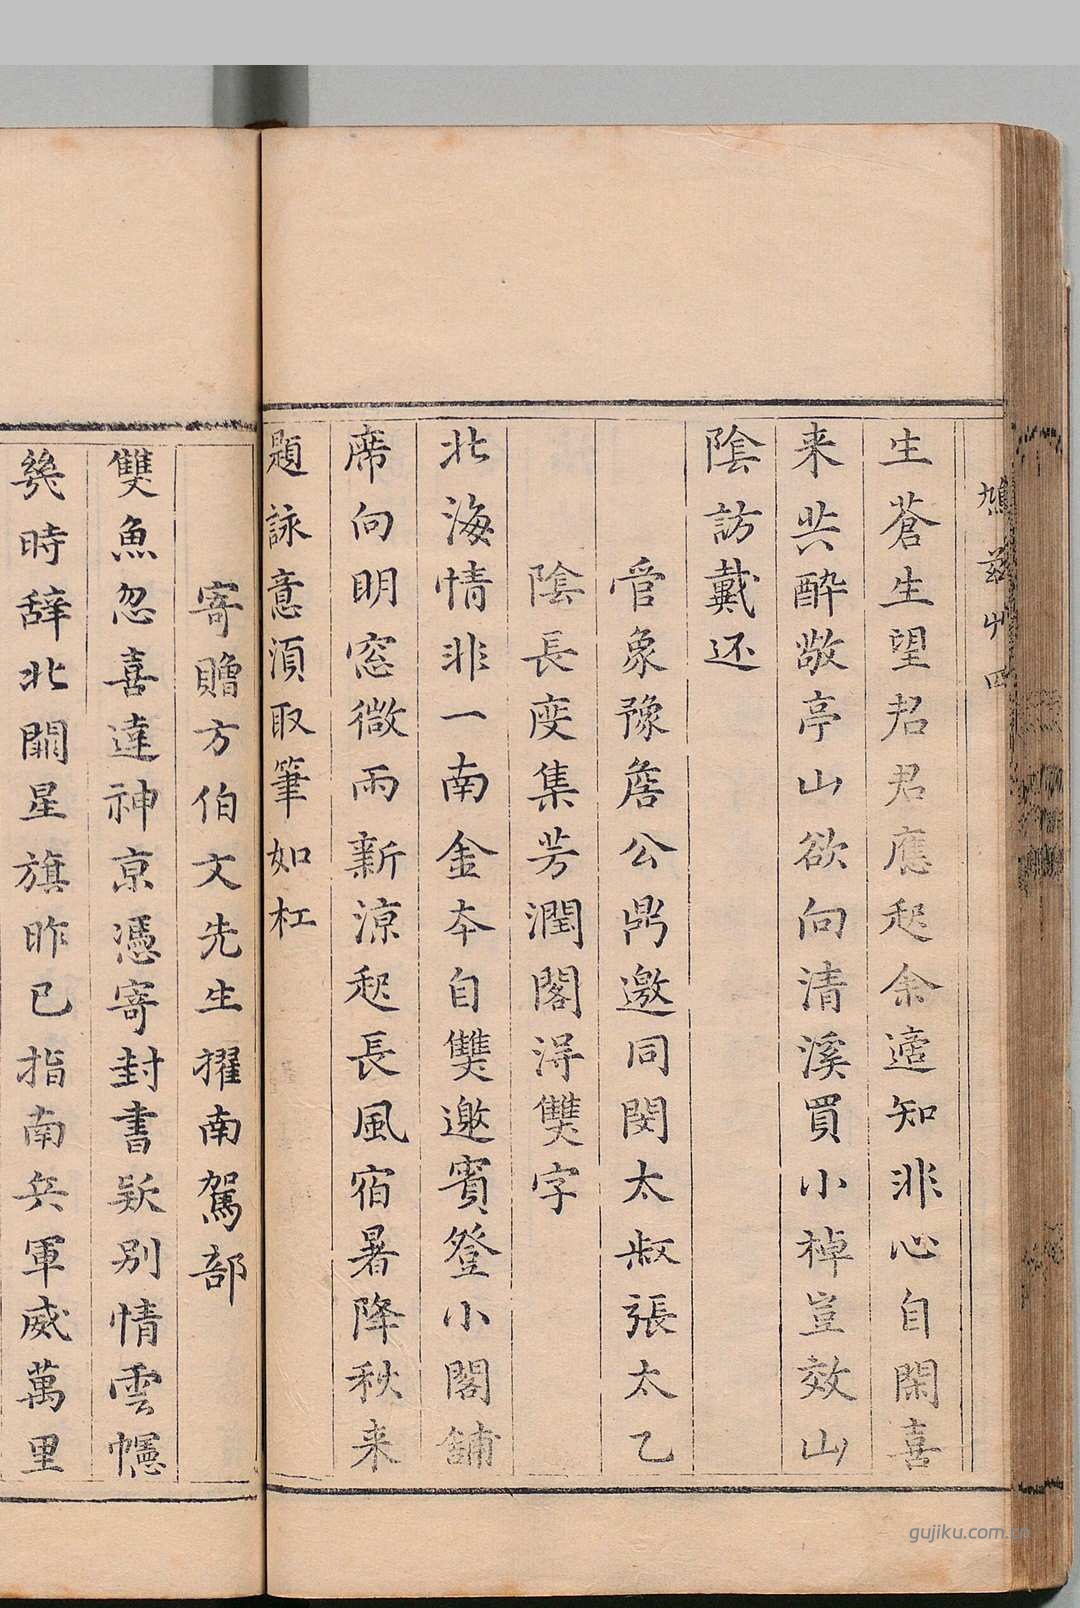 鳩茲艸 四
生蒼生望君君應起余適知非心自閑喜
来共酔敬亭山欲向清溪買小棹豈效山
陰訪戴还
管象豫詹公鼎邀同閔太叔張太乙
陰長度集芳潤閣得雙字
北海情非一南金本自雙邀賓登小閣鋪
席向明窓微雨新涼起長風宿暑降秋来
題詠意須取筆如杠
寄贈方伯文先生擢南駕部
雙魚忽喜達神京憑寄封書疑別情雲幰
幾時辞北闕星旗昨已指南兵軍威萬里
gujiku.com.cn